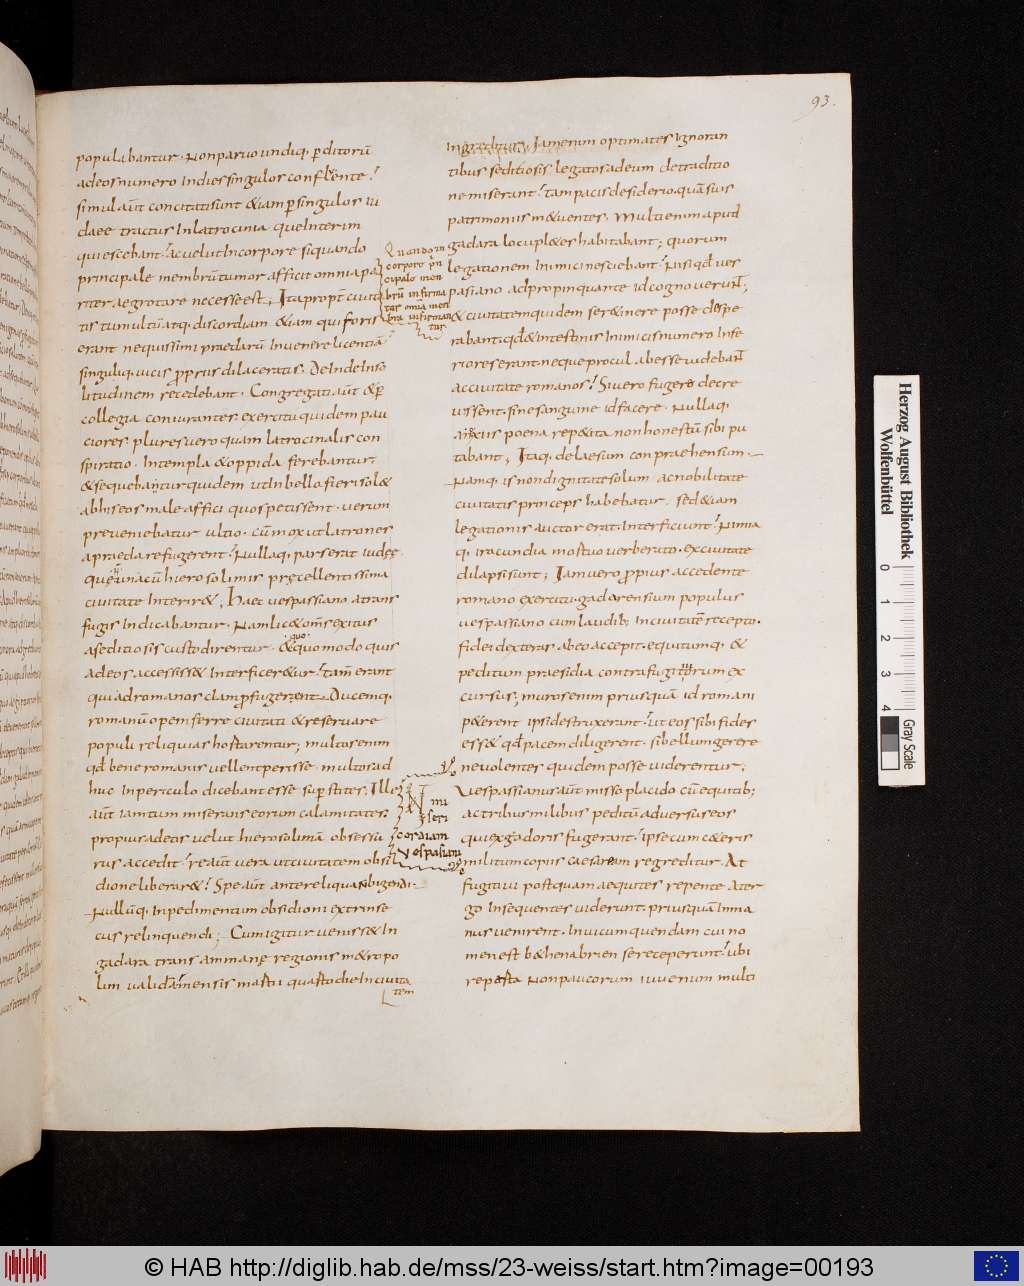 93.
populabantur. Non paruo undiq; p̄ditorū
adeos numero Indies singulos confluente.
simul aūt concitati sunt &iam p̄ singulos iu
daee tractus Inlatrocinia. que Interim
quiescebant. ac uelut Incorpore siquando
principale membrū tumor afficit omnia pa
riter aegrotare necesse est; Ita propt̄ ciuita
tis tumultū atq; discordiam &iam qui foris
erant nequissimi praedarū Inuenere licentiā
singuliq; uicis propriis dilaceratis. DeInde Inso
litudinem recedebant. Congregati aūt & p̄
collegia coniurantes exercitu quidem pau
ciores. plures uero quam latrocinalis con
spiratio. Intempla & oppida ferebantur.
& sequebantur quidem ut In bello fieri sol&
ab his eos male affici quos petissent. uerum
preueniebatur ultio. cū mox ut latrones
a praeda refugerent. Nullaq; pars erat iudeę
que n̄ una cū hierosolimis pręcellentissima
ciuitate Interir&; Haec uespasiano a trans
fugis Indicabantur. Nam lic& oms̄ exitus
a seditiosis custodirentur. & quoquo modo quis
ad eos accessiss& Interficer&ur. tam̄ erant
qui ad romanos clam p̄fugerent. Ducemq;
romanū opem ferre ciuitati & reseruare
populi reliquias hortarentur; multos enim
qd̄ bene romanis uellent perisse. multos ad
huc Inpericulo dicebant esse sup̄stites. Ille
aūt iamtum miserans eorum calamitates.
propius adeos uelut hierosolimā obsessu
rus accedit. re aūt uera ut ciuitatem obsi
dione liberar&. Spe aūt ante reliqua subigendi.
Nullūq; Inpedimentum obsidioni extrinse
cus relinquendi; Cum igitur uenisset In
gadara trans ammanę regionis m&ropo
lim ualidam. mensis mastii quarto die Inciuita
tem
Quando in
corpore prin
cipale mem
brū infirma
tur omnia mem
bra infirman
tur
Ni
miseri
cordiam
Vespasiani
Ingreditur. Iam enim optimates Ignoran
tibus seditiosis legatos adeum de traditio
ne miserant. tam pacis desiderio. quā suis
patrimoniis m&uentes. Multi enim apud
gadara locupl&es habitabant; quorum
legationem Inimici nesciebant. Nisi qd̄ ues
pasiano adpropinquante id cognouerunt;
& ciuitatem quidem ser&inere posse despe
rabant. qd̄ & intestinis Inimicis numero Infe
riores erant. neque procul abesse uidebant
a ciuitate romanos. Si uero fugere decre
uissent. sine sanguine id facere. Nullaq;
a noxiis poena rep&ita non honestū sibi pu
tabant; Itaq; delaesium conpraehensum.
Namq; is non dignitate solum ac nobilitate
ciuitatis princeps habebatur. sed &iam
legationis auctor erat. Interficiunt. Nimia
q; iracundia mortuo uerberato. ex ciuitate
dilapsi sunt; Iam uero propius accedente
romano exercitu. gadarensium populus
uespasiano cum laudib; Inciuitatē recepto.
fidei dexteras ab eo accepit. equitumq; &
peditum praesidia contra fugitiuorum ex
cursus; muros enim priusquā id romani
p&erent ipsi destruxerant. ut eos sibi fides
ess& qd̄ pacem diligerent. si bellum gerere
ne uolentes quidem posse uiderentur;
Vespasianus aūt misso placido cū equitib;
ac tribus milibus peditū aduersus eos
qui ex gadoris fugerant. ipse cum c&eris
militum copiis caesaream regreditur. At
fugitiui postquam aequites repente a ter
go Insequentes uiderunt. priusquā Inma
nus uenirent. In uicum quendam cui no
men est b&henabrien se receperunt. ubi
reposta non paucorum iuuenum multi
Herzog August Bibliothek
Wolfenbüttel
0 1 2 3 4
Gray Scale
© HAB http://diglib.hab.de/mss/23-weiss/start.htm?image=00193